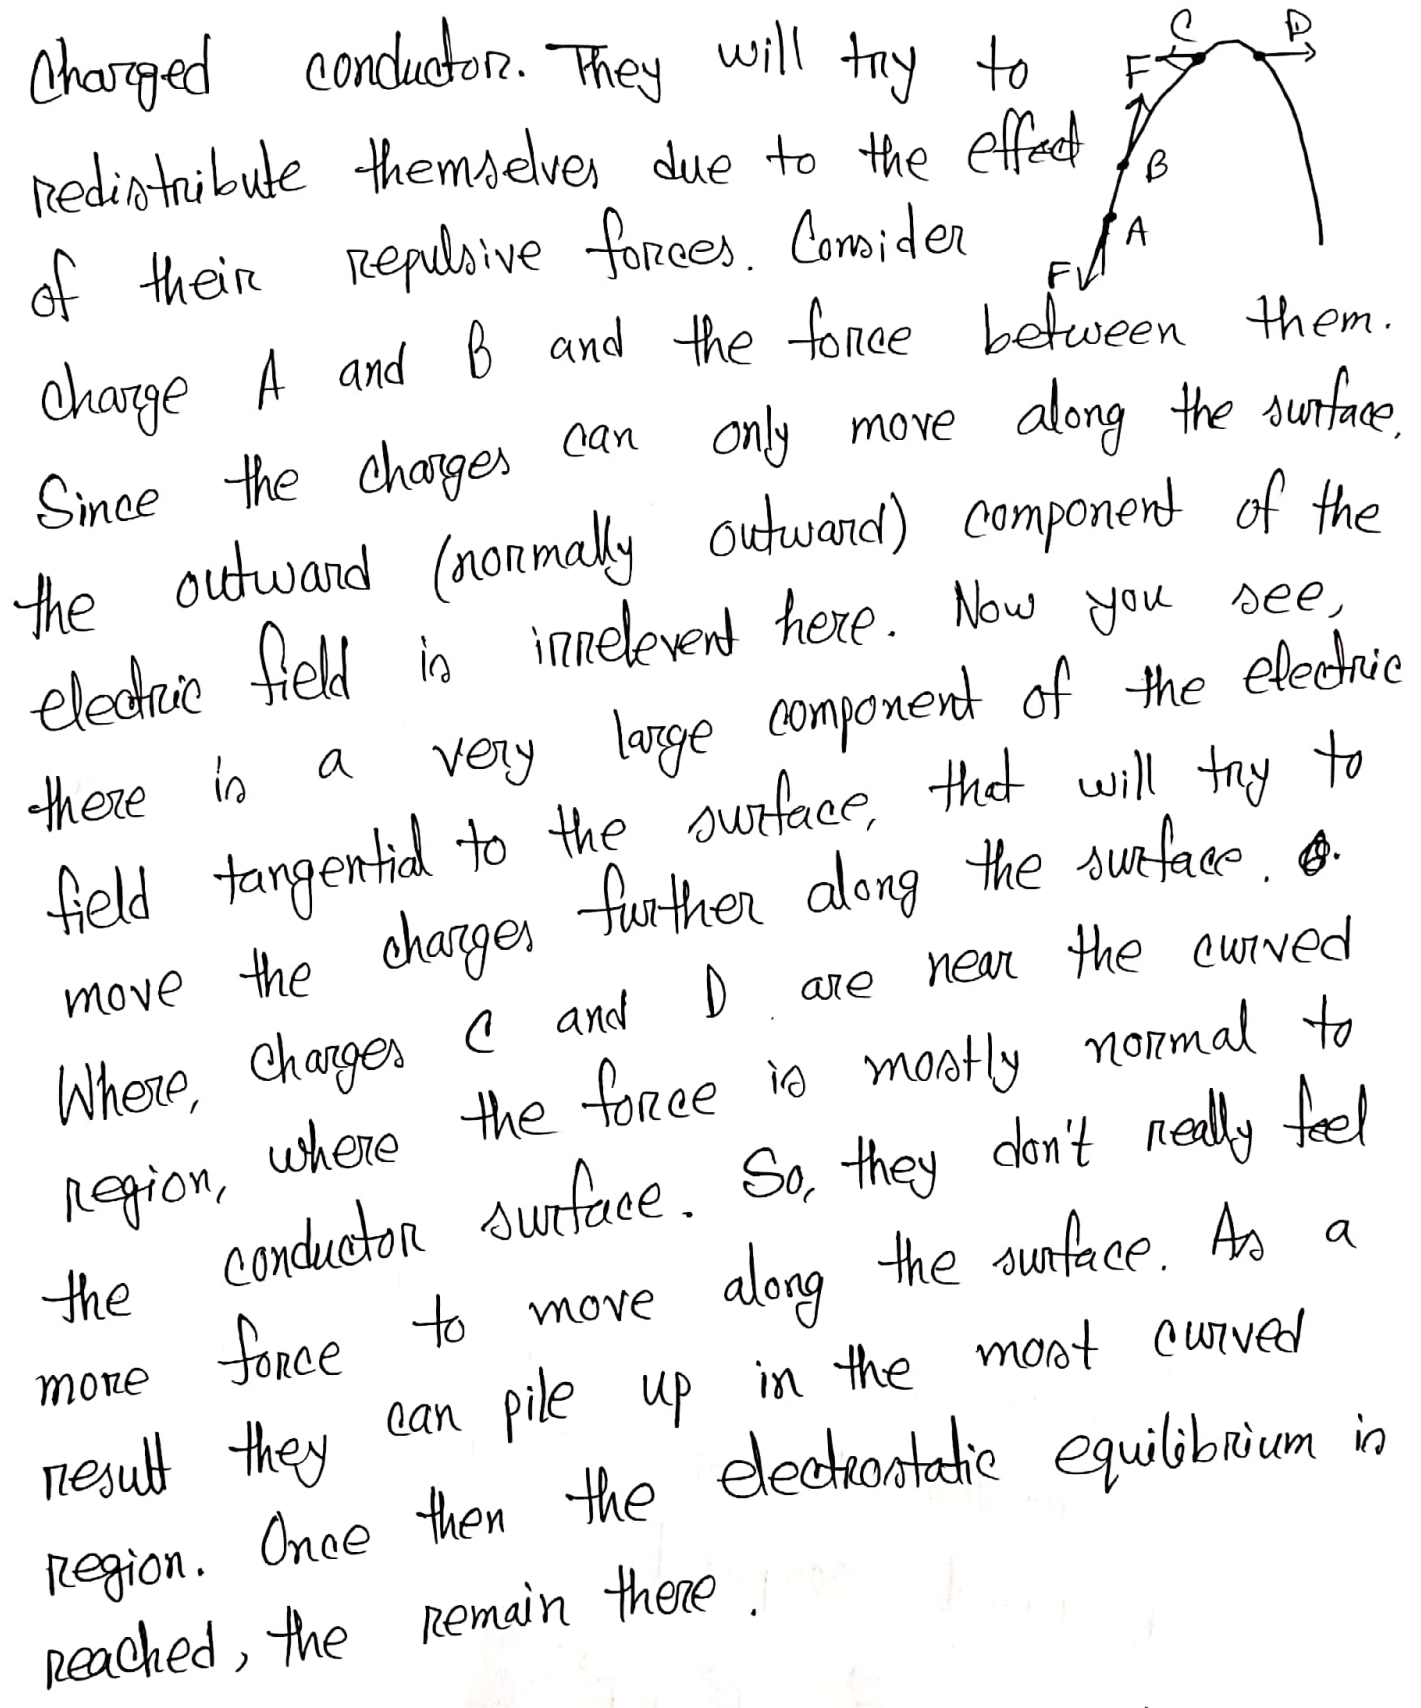 Charged conductor. They will try to
redistribute themselves due to the effect
of their repulsive forces. Consider
charge A and B and the force between them.
Since the charges can only move along the surface,
the outward (normally outward) component of the
electric field is irrelevent here. Now you see,
there is a very large component of the electric
field tangential to the surface, that will try to
move the charges further along the surface.
Where, charges C and D are near the curved
region, where the force is mostly normal to
the conductor surface. So, they don't really feel
more force to move along the surface. As a
result they can pile up in the most curved
region. Once then the electrostatic equilibrium is
reached, the remain there.
C
D
F
B
A
F